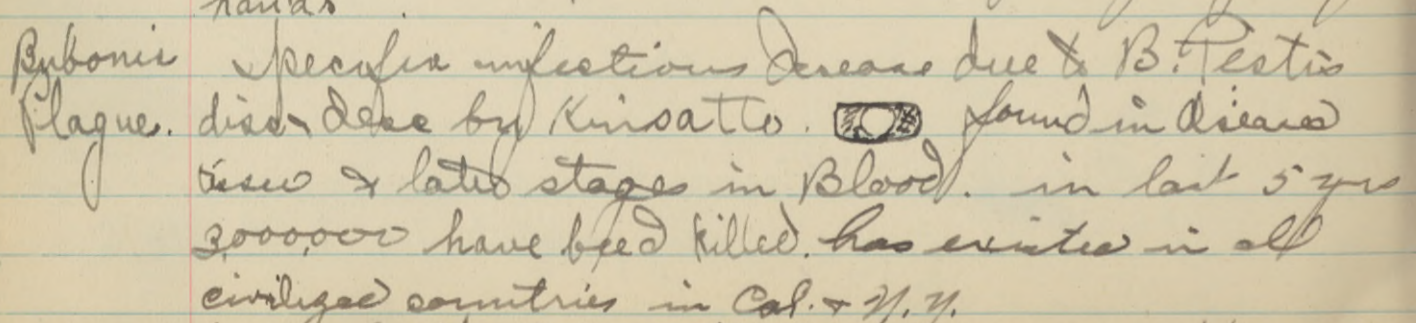 hands
Bubonic Specific infectious Disease due to B. Pestis
Plague. disc & desc by Kinsatto. found in diseased
tissu & later stages in Blood. in last 5 yrs
3,000,000 have beed killed. has existed in all
civilized countries in Cal. & N.Y.